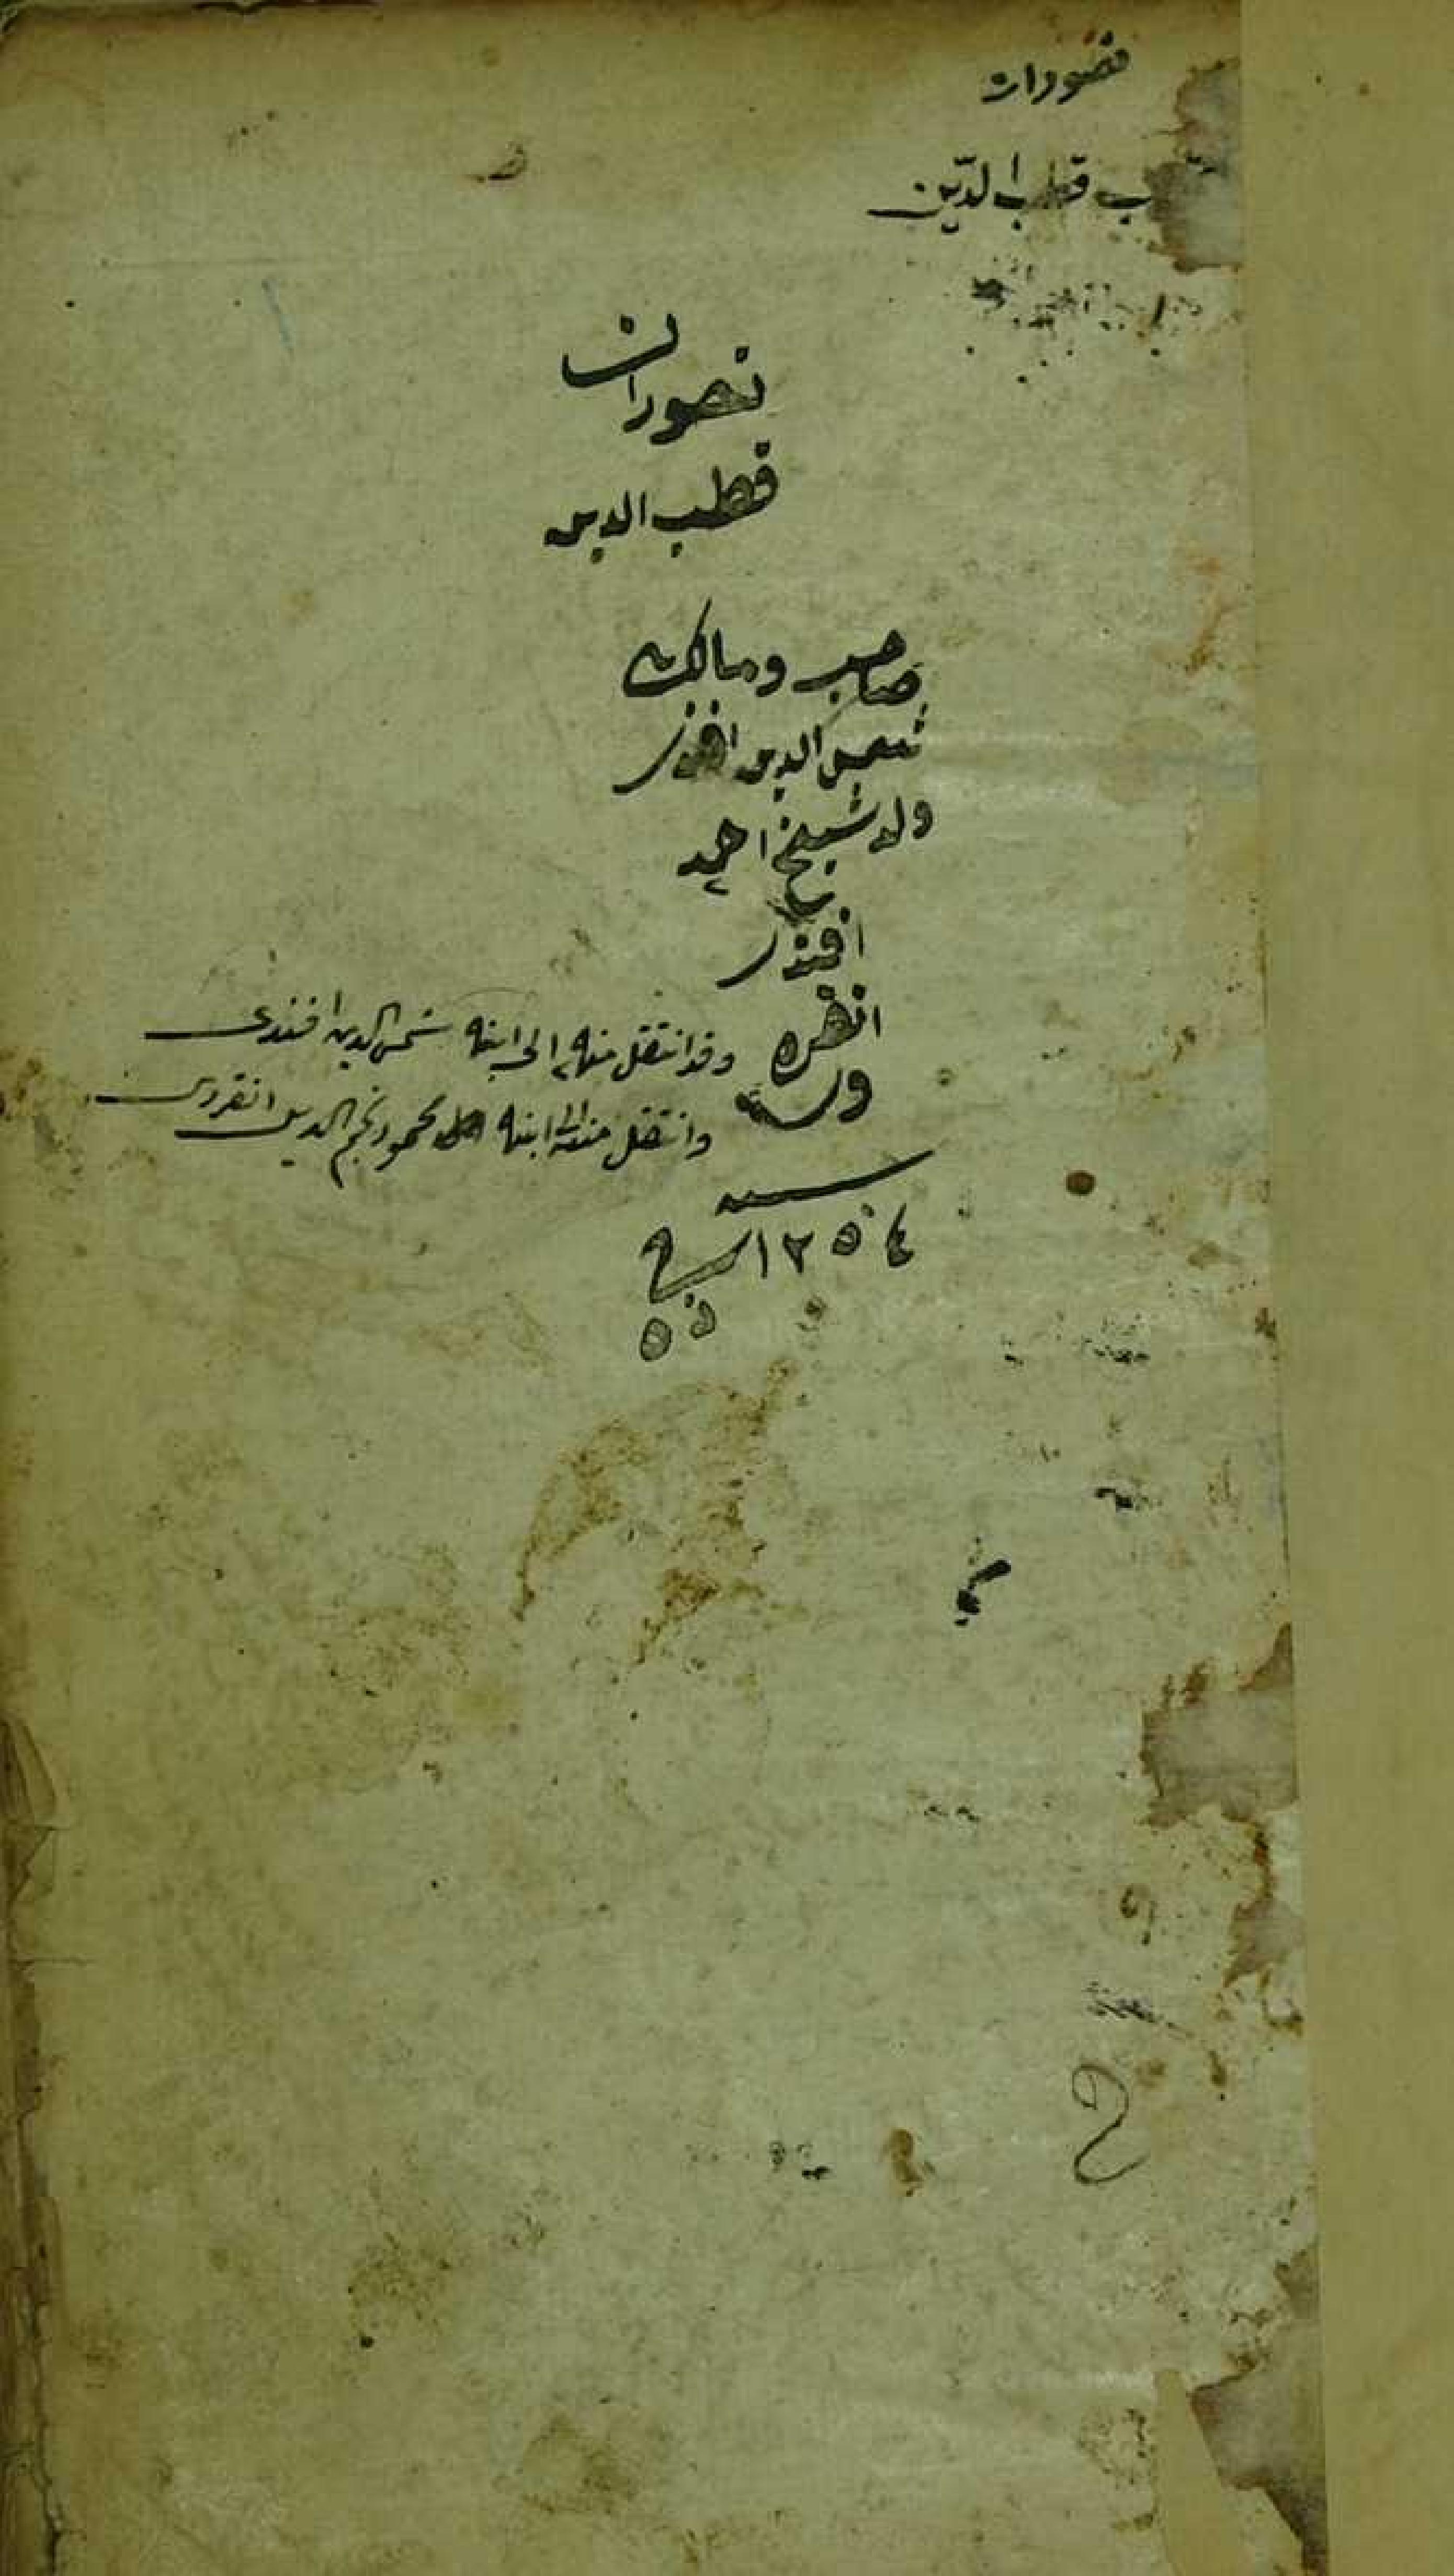 تصورات
قطب الدين
تصورات
قطب الدين
صاحب ومالك
شمس الدين افندى
ولد شيخ احمد
افندى
انقروى
وقد انتقل منه الى ابنه شمس الدين افندى
وانتقل منه الى ابنه محمود نجم الدين انقروى
سنه
١٢٥٤